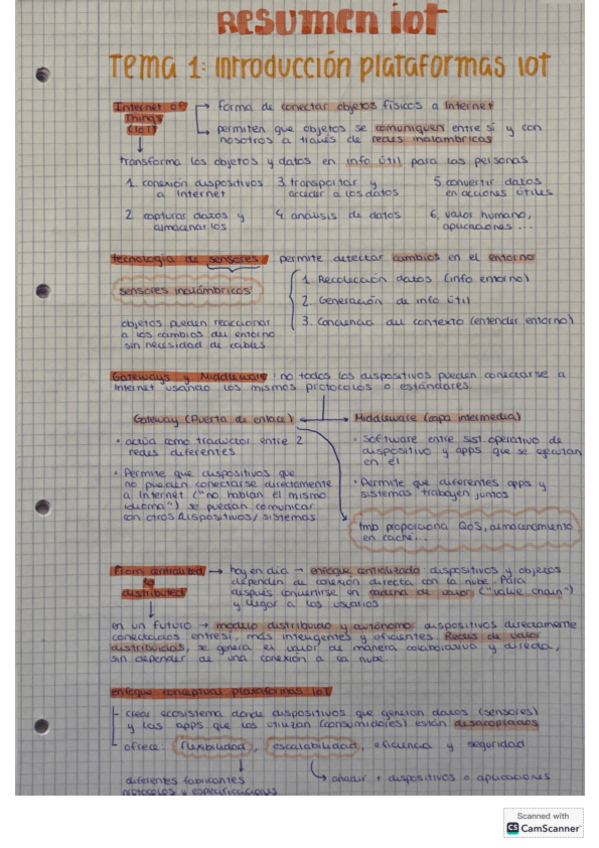 Scanned with
CamScanner
Resumen iot
Tema 1: Introducción plataformas IOT
Internet of → forma de conectar objetos físicos a Internet
Things
(IoT) → permiten que objetos se comuniquen entre sí y con
nosotros a través de redes inalámbricas
transforma los objetos y datos en info útil para las personas
1. conexión dispositivos 3. transportar y 5. convertir datos
a Internet acceder a los datos en acciones útiles
2. capturar datos y 4. análisis de datos 6. valor humano,
almacenarlos aplicaciones...
tecnología de sensores permite detectar cambios en el entorno
sensores inalámbricos
1. Recolección datos (info entorno)
2. Generación de info útil
3. Conciencia del contexto (entender entorno)
objetos pueden reaccionar
a los cambios del entorno
sin necesidad de cables
Gateways y Middleware: no todos los dispositivos pueden conectarse a
Internet usando los mismos protocolos o estándares.
Gateway (Puerta de enlace) Middleware (capa intermedia)
• actúa como traductor entre 2
redes diferentes
• Permite que dispositivos que
no pueden conectarse directamente
a Internet ("no hablan el mismo
idioma") se puedan comunicar
con otros dispositivos/sistemas
• Software entre sist. operativo de
dispositivo y apps que se ejecutan
en él
• Permite que diferentes apps y
sistemas trabajen juntos
tmb proporciona QoS, almacenamiento
en caché...
From centralited → hoy en día → enfoque centralizado: dispositivos y objetos
to dependen de conexión directa con la nube. Para
distributed después convertirse en cadena de valor ("value chain")
y llegar a los usuarios
en un futuro → modelo distribuido y autónomo: dispositivos directamente
conectados entre sí, más inteligentes y eficientes. Redes de valor
distribuidas, se genera el valor de manera colaborativa y directa,
sin depender de una conexión a la nube.
enfoque conceptual plataformas IoT
crear ecosistema donde dispositivos que generan datos (sensores)
y las apps que los utilizan (consumidores) están desacoplados
ofrece: flexibilidad, escalabilidad, eficiencia y seguridad
diferentes fabricantes → añadir + dispositivos o aplicaciones
protocolos y especificaciones
Scanned with
CS CamScanner